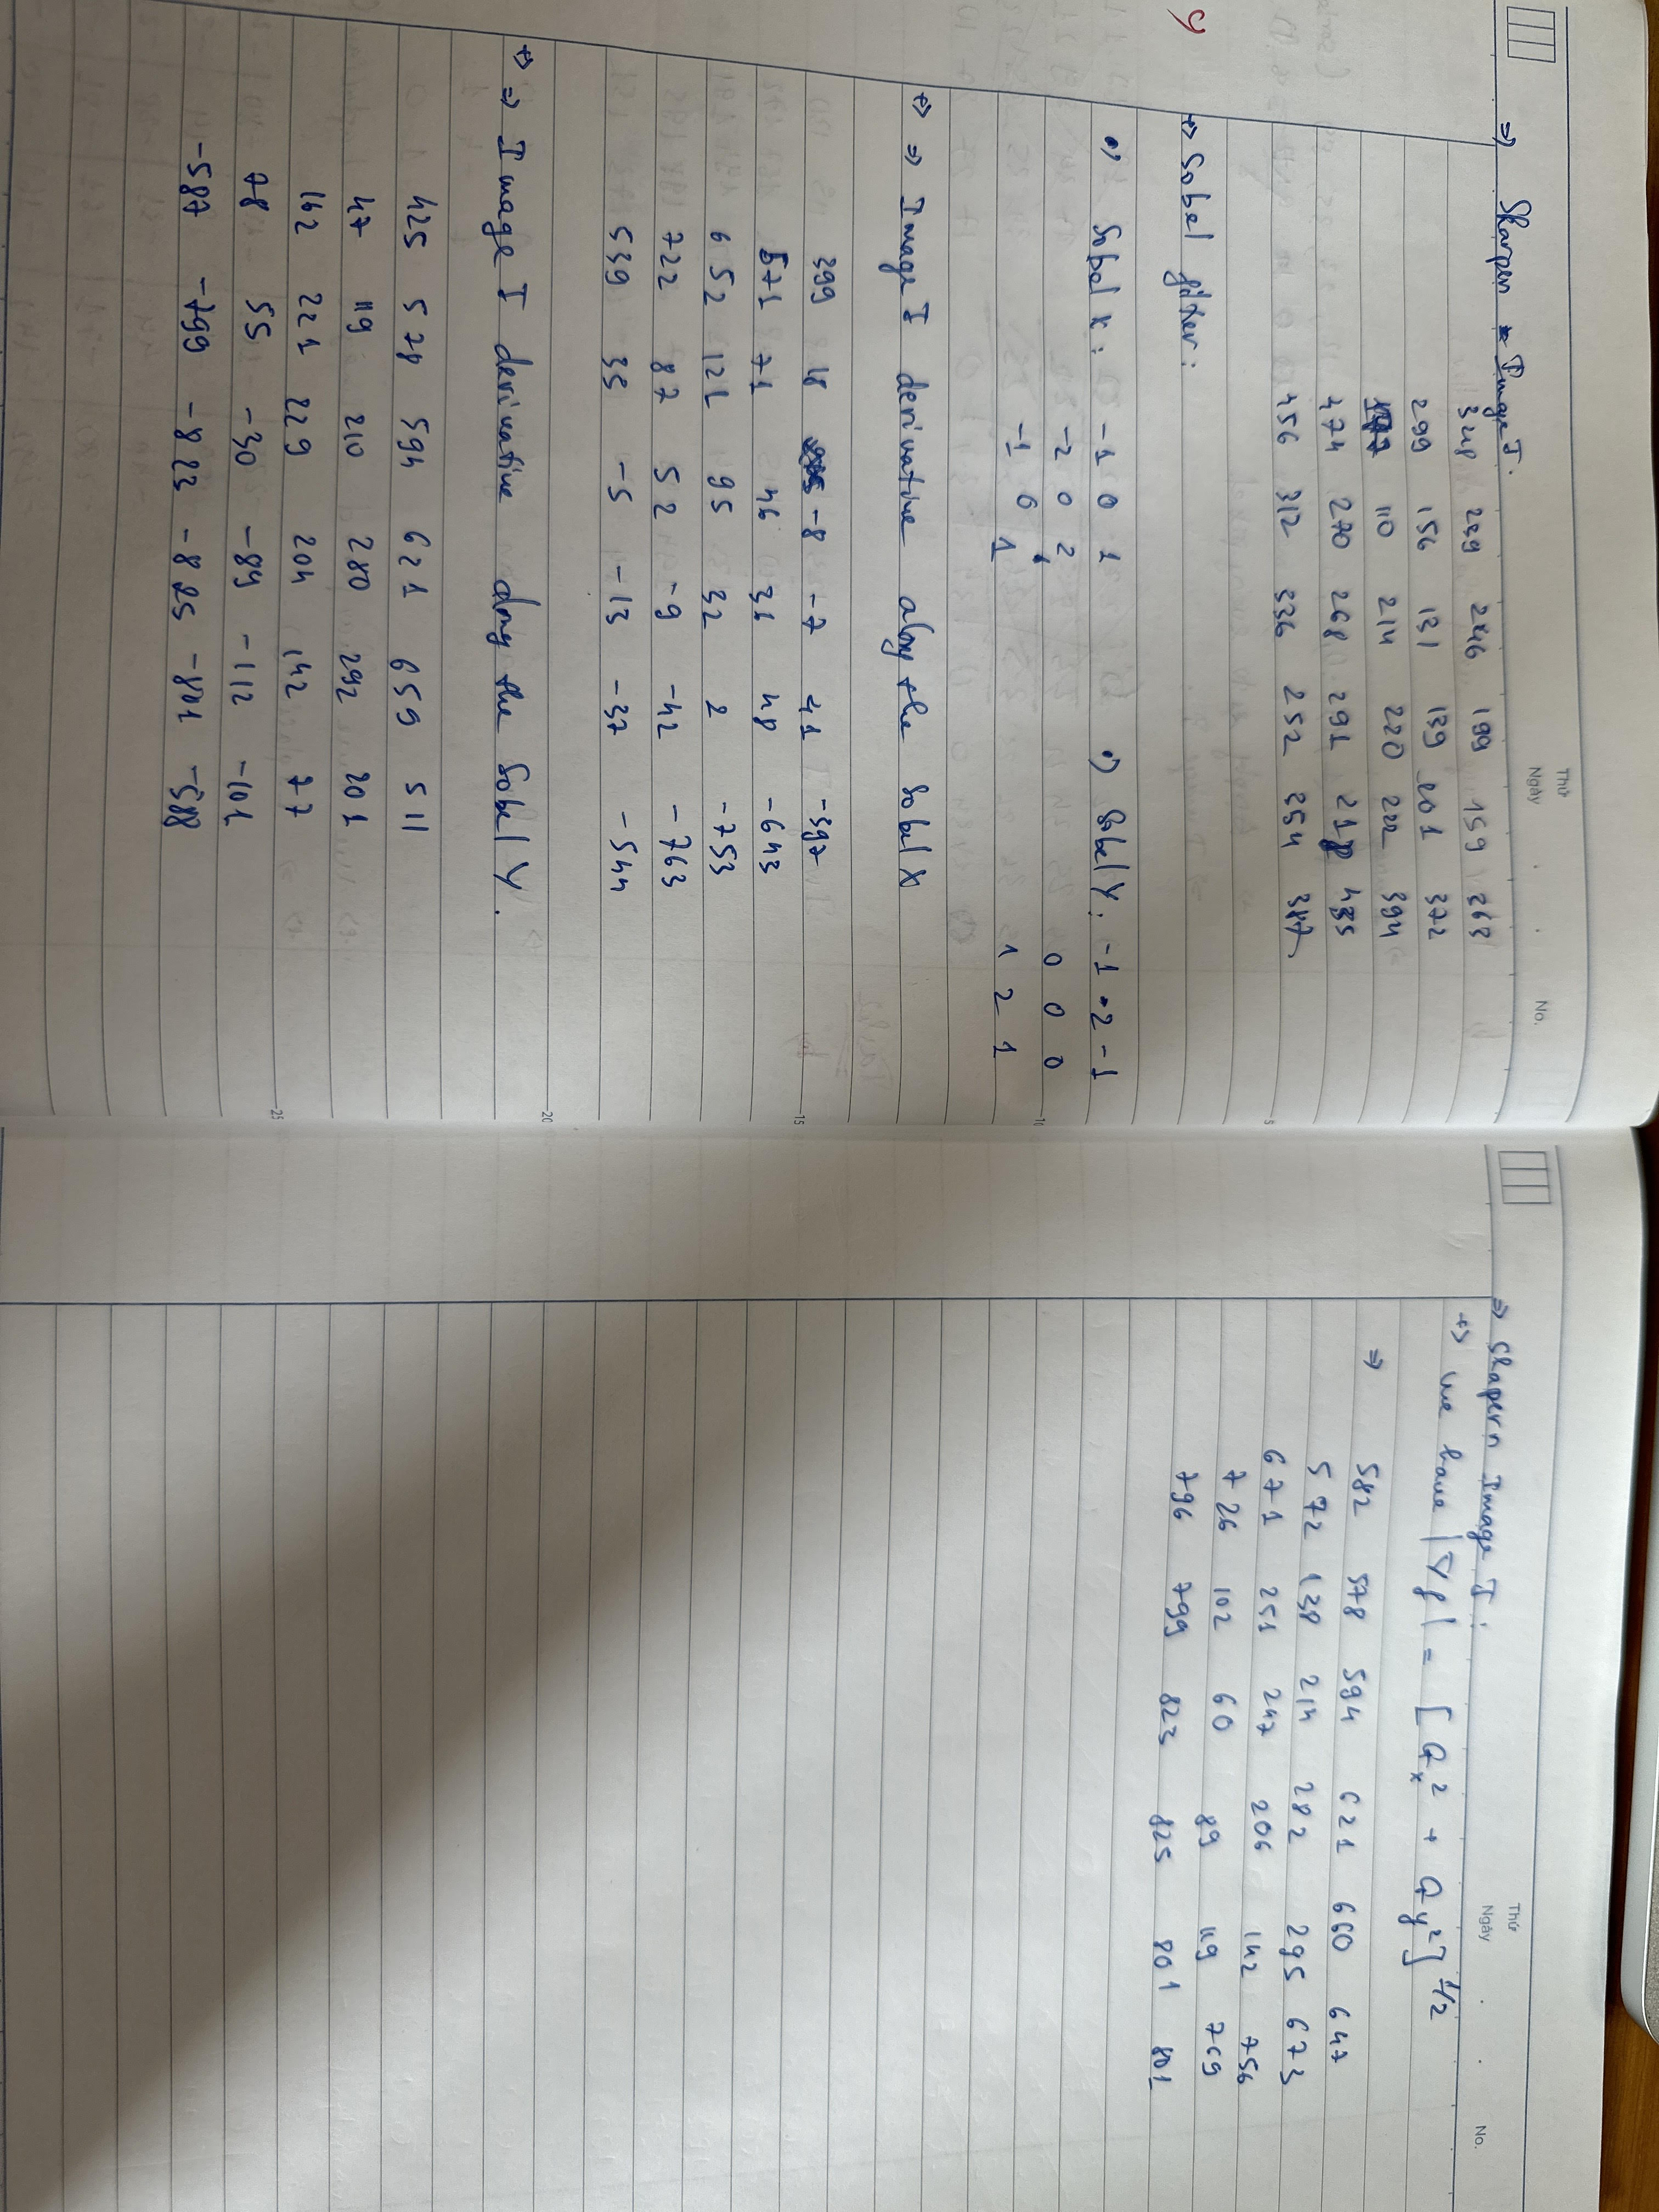 Thứ
Ngày . . No.
⇒ Sharpen Image I:
328 239 246 199 159 363
299 156 131 139 201 372
110 214 220 222 394
474 270 268 291 435
456 312 336 252 254 347
+> Sobel filter:
•) Sobel x: -1 0 1 •) Sobel Y: -1 -2 -1
-2 0 2 0 0 0
-1 0 1 1 2 1
+> ⇒ Image I derivative along the Sobel X
399 18 -8 -7 41 -397
571 71 46 31 48 -643
652 121 95 32 2 -753
722 87 52 -9 -42 -763
539 35 -5 -13 -37 -544
+> ⇒ Image I derivative along the Sobel Y.
425 578 594 621 659 511
47 119 210 280 292 201
142 221 229 204 142 77
78 55 -30 -89 -112 -101
-587 -799 -823 -825 -801 -588
Thứ
Ngày . . No.
⇒ Shapern Image I:
+> we have |∇f| = [Gx² + Gy²]^1/2
⇒ 582 578 594 621 660 647
572 138 214 282 295 673
671 251 247 206 142 756
726 102 60 89 119 769
796 799 823 825 801 801